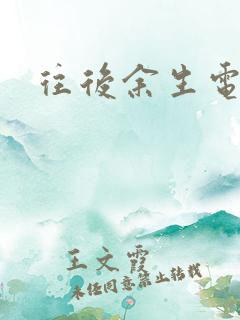 往後余生電
王文霞
未经同意禁止转载